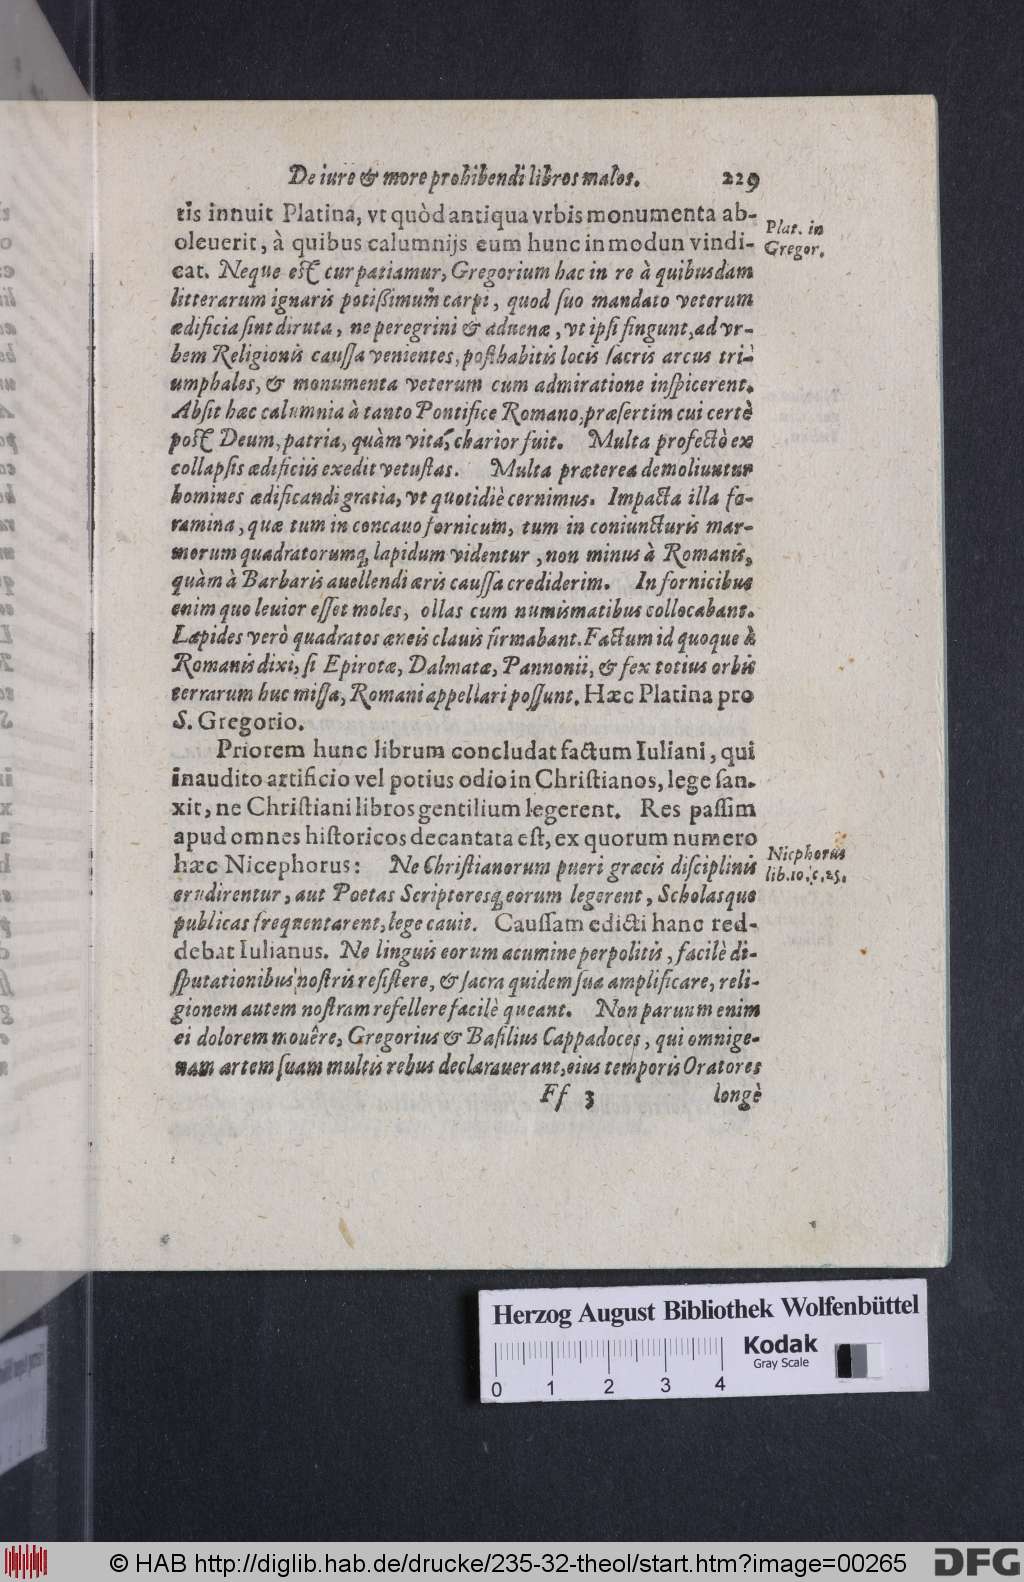 De iure & more prohibendi libros malos. 229
tis innuit Platina, vt quòd antiqua vrbis monumenta ab-
oleuerit, à quibus calumnijs eum hunc in modun vindi-
cat. Neque est cur patiamur, Gregorium hac in re à quibusdam
litterarum ignaris potissimum carpi, quod suo mandato veterum
ædificia sint diruta, ne peregrini & aduenæ, vt ipsi fingunt, ad vr-
bem Religionis caussa venientes, posthabitis locis sacris arcus tri-
umphales, & monumenta veterum cum admiratione inspicerent.
Absit hæc calumnia à tanto Pontifice Romano, præsertim cui certè
post Deum, patria, quàm vita, charior fuit. Multa profectò ex
collapsis ædificiis exedit vetustas. Multa præterea demoliuntur
homines ædificandi gratia, vt quotidiè cernimus. Impacta illa fo-
ramina, quæ tum in concauo fornicum, tum in coniuncturis mar-
morum quadratorumq; lapidum videntur, non minus à Romanis,
quàm à Barbaris auellendi æris caussa crediderim. In fornicibus
enim quo leuior esset moles, ollas cum numismatibus collocabant.
Lapides verò quadratos æneis clauis firmabant. Factum id quoque à
Romanis dixi, si Epirotæ, Dalmatæ, Pannonii, & fex totius orbis
terrarum huc missa, Romani appellari possunt. Hæc Platina pro
S. Gregorio.
Plat. in
Gregor.
Priorem hunc librum concludat factum Iuliani, qui
inaudito artificio vel potius odio in Christianos, lege san-
xit, ne Christiani libros gentilium legerent. Res passim
apud omnes historicos decantata est, ex quorum numero
hæc Nicephorus: Ne Christianorum pueri græcis disciplinis
erudirentur, aut Poetas Scriptoresq; eorum legerent, Scholasque
publicas frequentarent, lege cauit. Caussam edicti hanc red-
debat Iulianus. Ne linguis eorum acumine perpolitis, facilè di-
sputationibus nostris resistere, & sacra quidem sua amplificare, reli-
gionem autem nostram refellere facilè queant. Non paruum enim
ei dolorem mouêre, Gregorius & Basilius Cappadoces, qui omnige-
nam artem suam multis rebus declarauerant, eius temporis Oratores
Nicphorus
lib. 10. c. 25.
Ff 3 longè
Herzog August Bibliothek Wolfenbüttel
Kodak
Gray Scale
0 1 2 3 4
© HAB http://diglib.hab.de/drucke/235-32-theol/start.htm?image=00265
DFG